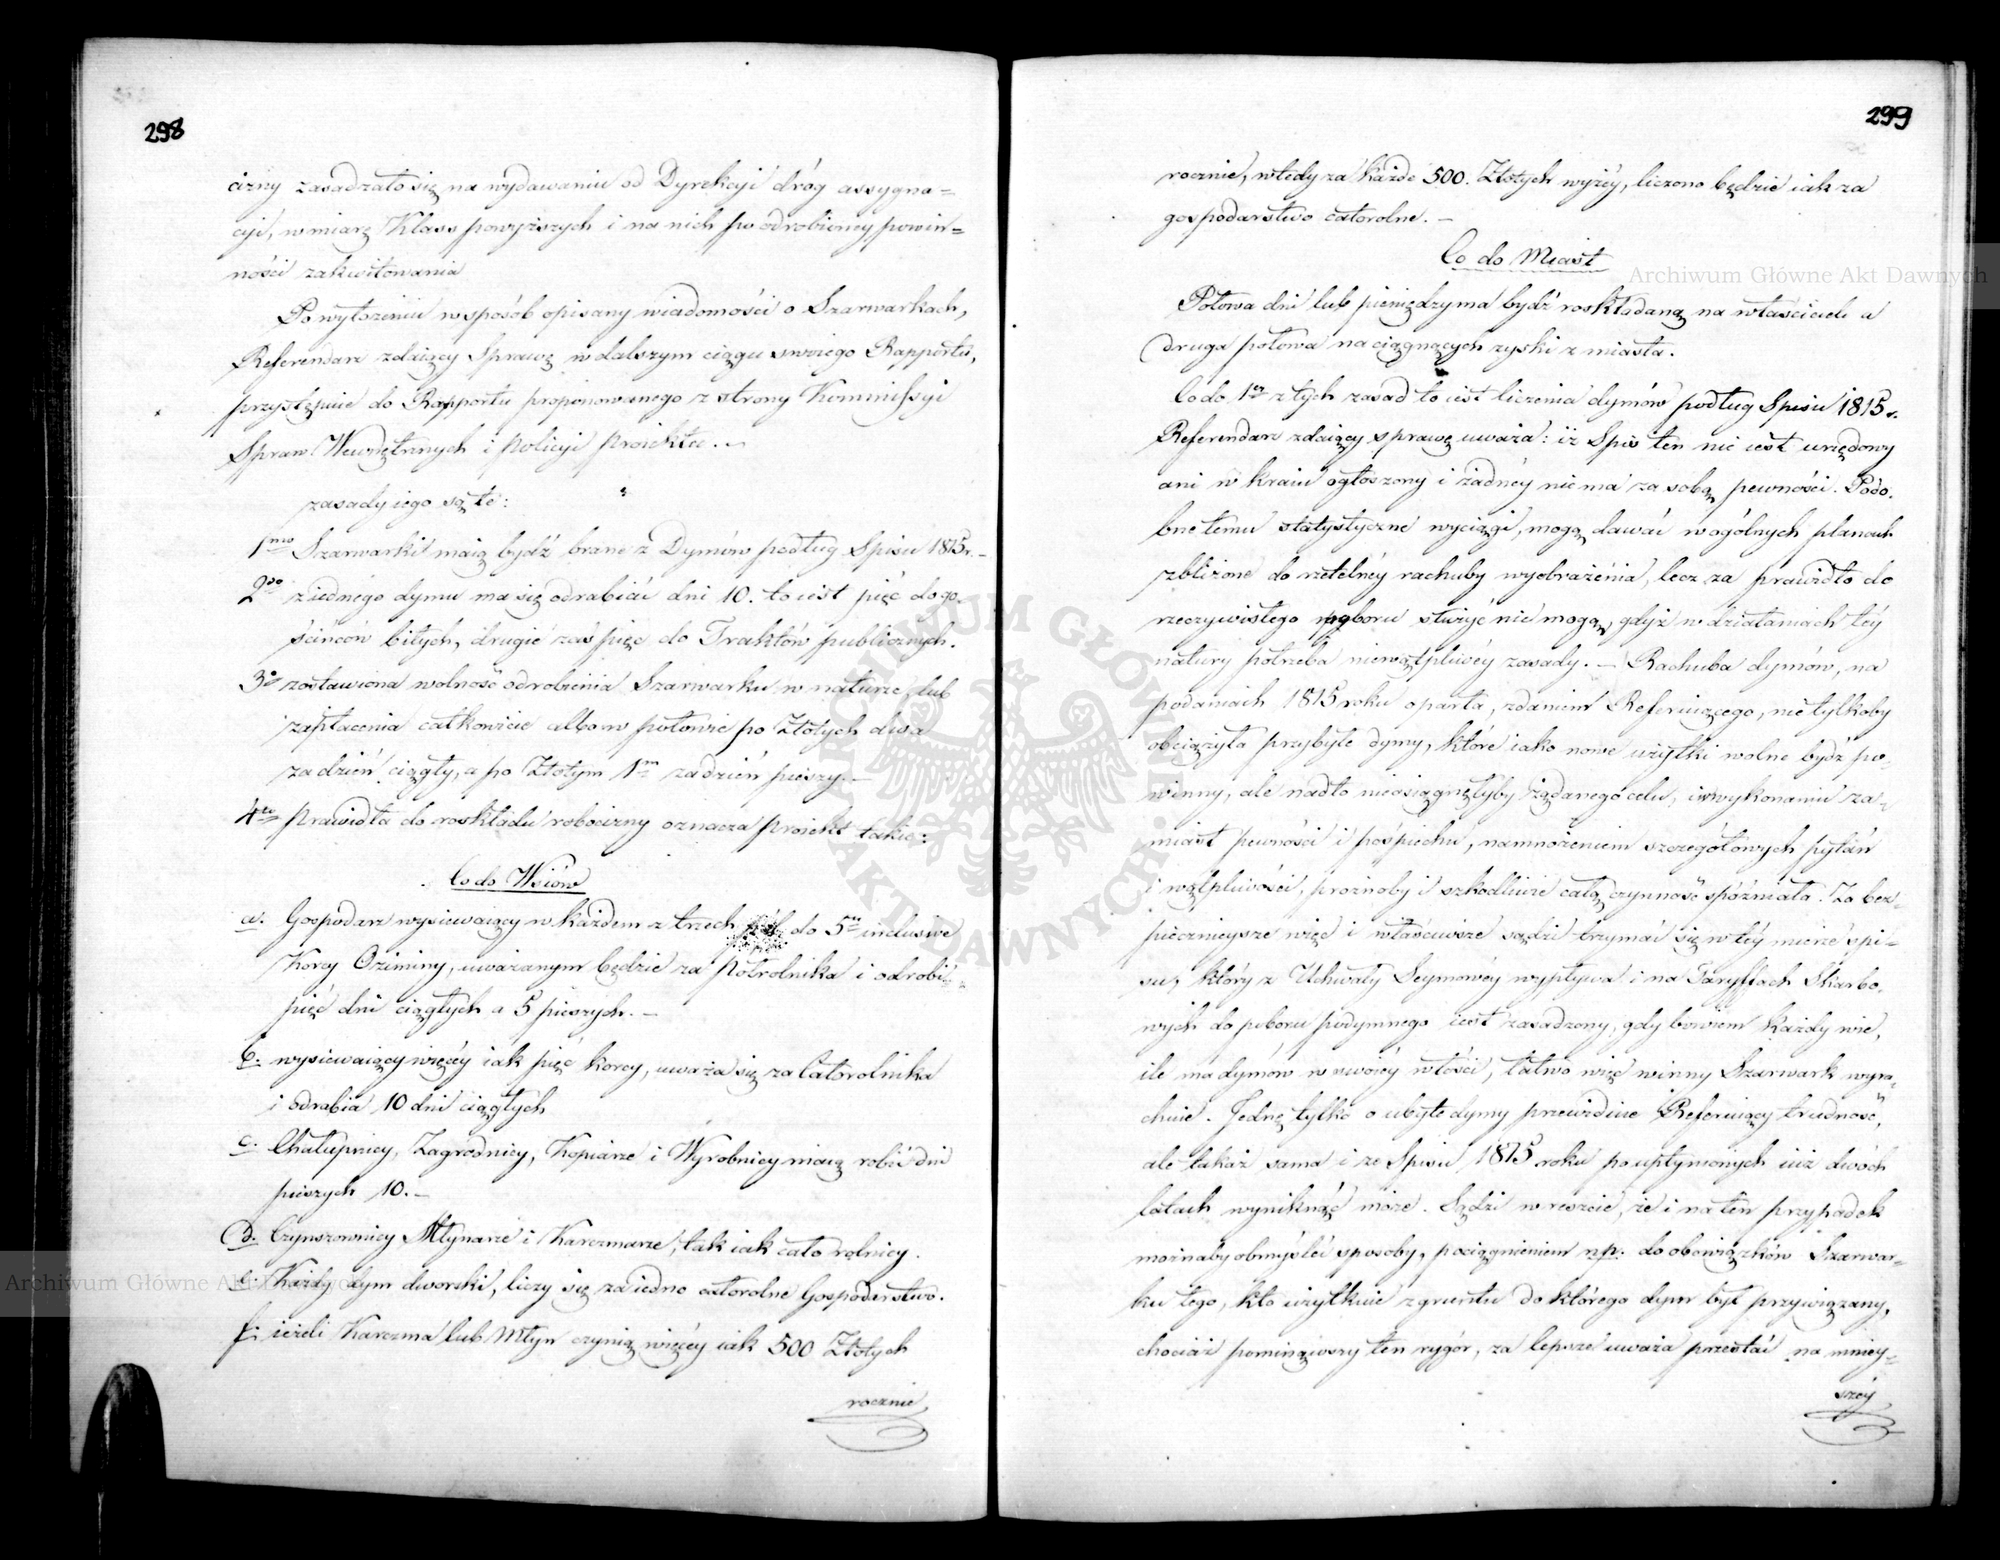 298
cizny zasadzało się na wydawaniu od Dyrekcyi dróg assygna=
cyi, w miarę Klass powyższych i na nich po odrobioney powin=
ności zakwitowania
Po wyłożeniu w sposób opisany wiadomości o Szarwarkach,
Referendarz zdaiący Sprawę w dalszym ciągu swoiego Rapportu,
przystępuie do Rapportu proponowanego z strony Kommissyi
Spraw Wewnętrznych i Policyi proiektu. –
zasady iego są te:
1mo Szarwarki maią bydź brane z Dymów podług Spisu 1815 r. –
2do z iednego dymu ma się odrabiać dni 10. to iest pięć do go-
ścińców bitych, drugie zaś pięć do Traktów publicznych.
3o zostawiona wolność odrobienia Szarwarku w naturze, lub
zapłacenia całkowicie albo w połowie po Złotych dwa
za dzień ciągły, a po Złotym 1m za dzień pieszy. –
4to Prawidła do roskładu robocizny oznacza Proiekt takie:
Co do Wsiów
a. Gospodarz wysiewaiący w każdem z trzech pól do 5u inclusive
Korcy Oziminy, uważanym będzie za Półrolnika i odrobi
pięć dni ciągłych a 5 pieszych. –
b. wysiewaiący więcéy iak pięć korcy, uważa się za Całorolnika
i odrabia 10 dni ciągłych
c. Chałupnicy, Zagrodnicy, Kopiarze i Wyrobnicy maią robić dni
pieszych 10. –
d. Czynszownicy Młynarze i Karczmarze, tak iak cało rolnicy.
e. Każdy dym dworski, liczy się za iedno całorolne Gospodarstwo.
f. ieżeli Karczma lub Młyn czynią więcéy iak 500 Złotych
rocznie,
299
rocznie, wtedy za każde 500. Złotych wyżéy, liczono będzie iak za
gospodarstwo całorolne. –
Co do Miast
Połowa dni lub pieniędzy ma bydź roskładaną na właścicieli a
druga połowa na ciągnących zyski z miasta.
Co do 1ey z tych zasad to iest liczenia dymów podług Spisu 1815 r.
Referendarz zdaiący sprawę uważa: iż Spis ten nie iest urzędowy
ani w kraiu ogłoszony i żadnéy nie ma za sobą pewności. Podo-
bne temu statystyczne wyciągi, mogą dawać w ogólnych planach
zbliżone do rzetelnéy rachuby wyobrażenia, lecz za prawidło do
rzeczywistego poboru służyć nie mogą, gdyż w działaniach téy
natury potrzeba niewątpliwéy zasady. – Rachuba dymów, na
podaniach 1815 roku oparta, zdaniem Referuiącego, nie tylkoby
obciążyła przybyłe dymy, które iako nowe użytki wolne bydź po-
winny, ale nadto nieosiągnęłyby żądanego celu, i w wykonaniu za-
miast pewności i pośpiechu, namnożeniem szczegółowych pytań
i wątpliwości, próżnoby i szkodliwie całą czynność spóźniała. Za bez-
piecznieysze więc i właściwsze sądzi trzymać się w téy mierze spi-
su, który z Uchwały Seymowéy wypływa i na Taryffach Skarbo-
wych do poboru podymnego iest zasadzony, gdy bowiem każdy wie,
ile ma dymów w swoiéy włości, łatwo więc winny Szarwark wyra-
chuie. Jednę tylko o ubyłe dymy przewiduie Referuiący trudność,
ale takaż sama i ze Spisu 1815 roku po upłynionych iuż dwóch
latach wyniknąć może. Sądzi wreszcie, że i na ten przypadek
możnaby obmyśleć sposoby, pociągnieniem np: do obowiązków Szarwar-
ku tego, kto użytkuie z gruntu do którego dym był przywiązany,
chociaż pominąwszy ten rygór, za lepsze uważa przestać na mniey-
széy